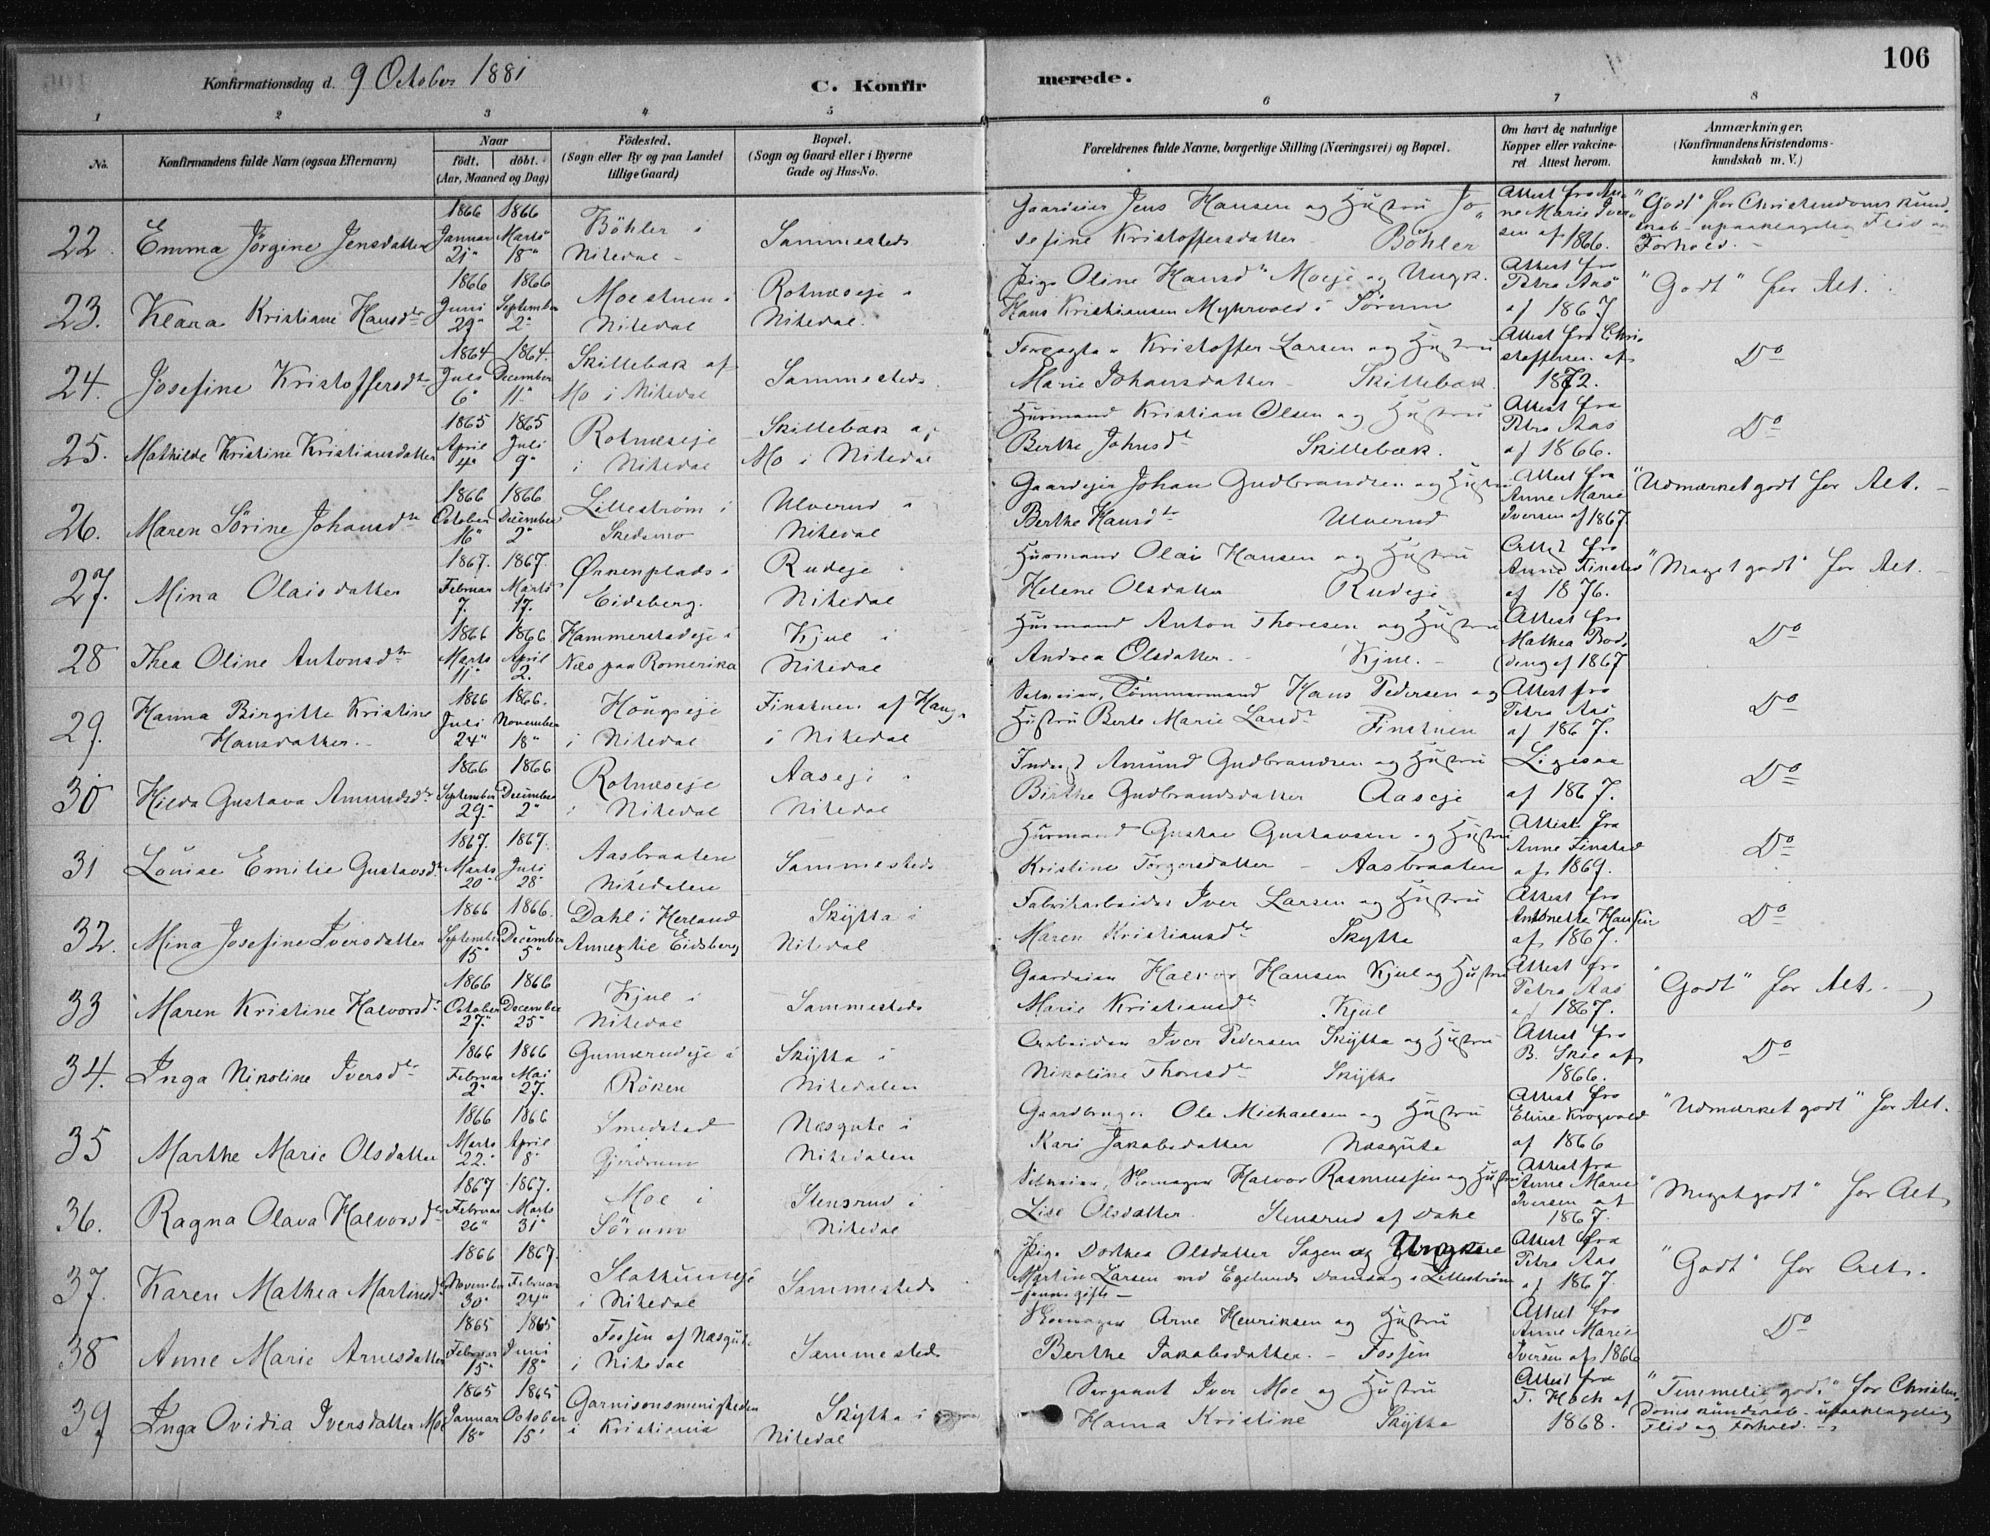 106
Konfirmationsdag d. 9 October 1881
C. Konfir
merede.
1 2 3 4 5 6 7 8
No.
Konfirmandens fulde Navn (ogsaa Efternavn)
Naar
födt. döbt.
(Aar, Maaned og Dag)
Födested.
(Sogn eller By og paa Landet
tillige Gaard)
Bopæl.
(Sogn og Gaard eller i Byerne
Gade og Hus-No.
Forældrenes fulde Navne, borgerlige Stilling (Næringsvei) og Bopæl.
Om havt de naturlige
Kopper eller vakcine-
ret Attest herom.
Anmærkninger.
(Konfirmandens Kristendoms-
kundskab m. V.)
22. Emma Jörgine Jensdatter
1866 Januar 21" 1866 Marts 18"
Böhler i
Nitedal
Sammesteds
Gaardeier Jens Hansen og Hustru Jo„
sefine Kristoffersdatter Böhler
Attest fra An„
ne Marie Iver„
sen af 1866.
"Godt" for Christendomskund„
skab - upaaklagelig Flid og
Forhold.
23. Klara Kristiane Hansdtr
1866 Juni 29" 1866 September 2"
Moestuen i
Nitedal
Rotnæseje i
Nitedal.
Pige Oline Hansdtr Moeje og Ungk.
Hans Kristiansen Myhrvold i Sörum
Attest fra
Petra Aas
af 1867.
"Godt" for Alt.
24. Josefine Kristoffersdtr
1864 Juli 6" 1864. December 11"
Skillebæk af
Mo i Nitedal
Sammesteds
Kristoffer Larsen og Hustru
Marie Johansdatter - Skillebæk.
Attest fra Chri„
stoffersen af
1872.
Do
25. Mathilde Kristine Kristiansdatter
1865 April 4" 1865 Juli 9"
Rotnæseje
i Nitedal
Skillebæk af
Mo i Nitedal
Husmand Kristian Olsen og Hustru
Berthe Johnsdt Skillebæk.
Attest fra
Petra Aas
af 1866.
Do
26. Maren Sörine Johansdtr
1866 October 16" 1866. December 2"
Lilleström i
Skedsmo
Ulverud i
Nitedal
Gaardejer Johan Gudbrandsen og Hustru
Berthe Hansdtr Ulverud
Attest fra
Anne Marie
Iversen af 1867
"Udmærketgodt for Alt.
27. Mina Olaisdatter
1867. Februar 7. 1867. Marts 17.
Ørkenplads i
Eidsberg.
Rudeje i
Nitedal
Husmand Olais Hansen og Hustru
Helene Olsdatter Rudeje
Attest fra
Anne Finstad
af 1876.
"Megetgodt" for Alt.
28 Thea Oline Antonsdtr
1866 Marts 11" 1866 April 2.
Hammerstadeje i
Næs paa Romerike
Kjul i
Nitedal
Husmand Anton Thoresen og Hustru
Andrea Olsdatter. Kjul.
Attest fra
Mathea Bod„
ding af 1867
Do
29. Hanna Birgitte Kristine
Hansdatter.
1866 Juli 24" 1866. November 18"
Haugseje
i Nitedal
Finstuen af Haug
i Nitedal
Selveier, Tömmermand Hans Pedersen og
Hustru Berte Marie Larsdt Finstuen
Attest fra
Petra Aas
af 1867.
Do
30 Hilda Gustava Amundsdtr
1866 September 29" 1866 December 2"
Rotnæseje
i Nitedal
Aaseje i
Nitedal
Inderst Amund Gudbrandsen og Hustru
Birthe Gudbrandsdatter Aaseje
Ligesaa
af 1867.
Do
31 Louise Emilie Gustavsdtr
1867. Marts 20" 1867. Juli 28"
Aasbraaten
Nitedalen
Sammesteds
Husmand Gustav Gustavsen og Hustru
Kristine Torgersdatter - Aasbraaten
Attest fra
Anne Finstad
af 1869.
Do
32. Mina Josefine Iversdatter
1866 September 15" 1866. December 5"
Dahl i Herland
Annex til Eidsberg
Skytta i
Nitedal
Fabrikarbeider Iver Larsen og Hustru
Maren Kristiansdtr Skytta
Attest fra
Antonette Hansen
af 1867.
Do
33 Maren Kristine Halvorsdt
1866 October 27." 1866 December 25"
Kjul i
Nitedal
Sammesteds
Gaardeier Halvor Hansen Kjul og Hustru
Marie Kristiansdtr Kjul
Attest fra
Petra Aas
af 1867.
"Godt" for Alt.
34. Inga Nikoline Iversdtr
1866 Februar 2" 1866 Mai 27.
Gunnerudeje i
Röken
Skytta i
Nitedalen
Arbeider Iver Pedersen Skytta og Hustru
Nikoline Thorsdtr Skytta
Attest fra
B. Skie af
1866.
Do
35 Marthe Marie Olsdatter
1866 Marts 22." 1866 April 8"
Smedstad
Gjerdrum
Næsgute i
Nitedalen
Gaardbruger Ole Michaelsen og Hustru
Kari Jakobsdatter Næsgute
Attest fra
Eline Krogvold
af 1866
"Udmærketgodt" for Alt.
36. Ragna Olava Halvorsdtr
1867 Februar 26" 1867. Marts 31"
Moe i
Sörum
Stensrud i
Nitedal
Selveier, Skomager Halvor Rasmussen og Hustru
Lise Olsdatter. Stensrud af Dahl
Attest fra
Anne Marie
Iversen af
1867.
"Megetgodt" for Alt
37. Karen Mathea Martinsdt
1866 November 30" 1867. Februar 24"
Slattumseje
i Nitedal
Sammesteds
Pige Dorthea Olsdatter Sagen og Ungkarl
Martin Larsen ved Egelunds Dampsag i Lilleström
Attest fra
Petra Aas
af 1867.
"Godt" for Alt.
38 Anne Marie Arnesdatter
1865 Februar 15" 1865 Juni 18"
Fossen af Næsgute
i Nitedal
Sammesteds
Skomager Arne Henriksen og Hustru
Berthe Jakobsdatter. - Fossen
Attest fra
Anne Marie
Iversen af 1866
Do
39 Inga Ovidia Iversdatter Moe
1865 Januar 18" 1865 October 15"
Garnisonsmenigheden
i Kristiania
Skytta i
Nitedal
Sergeant Iver Moe og Hustru
Hanna Kristine Skytta
Attest fra
T. Hoch af
1868.
"Temmelig godt" for Christen„
domskundskab - upaaklagelig
Flid og Forhold.